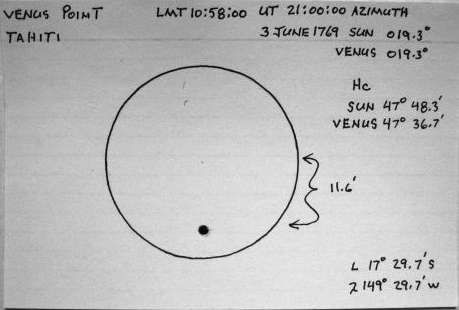 VENUS POINT LMT 10:58:00 UT 21:00:00 AZIMUTH
TAHITI 3 JUNE 1769 SUN 019.3°
VENUS 019.3°
Hc
SUN 47° 48.3'
VENUS 47° 36.7'
11.6'
L 17° 29.7's
λ 149° 29.7'w